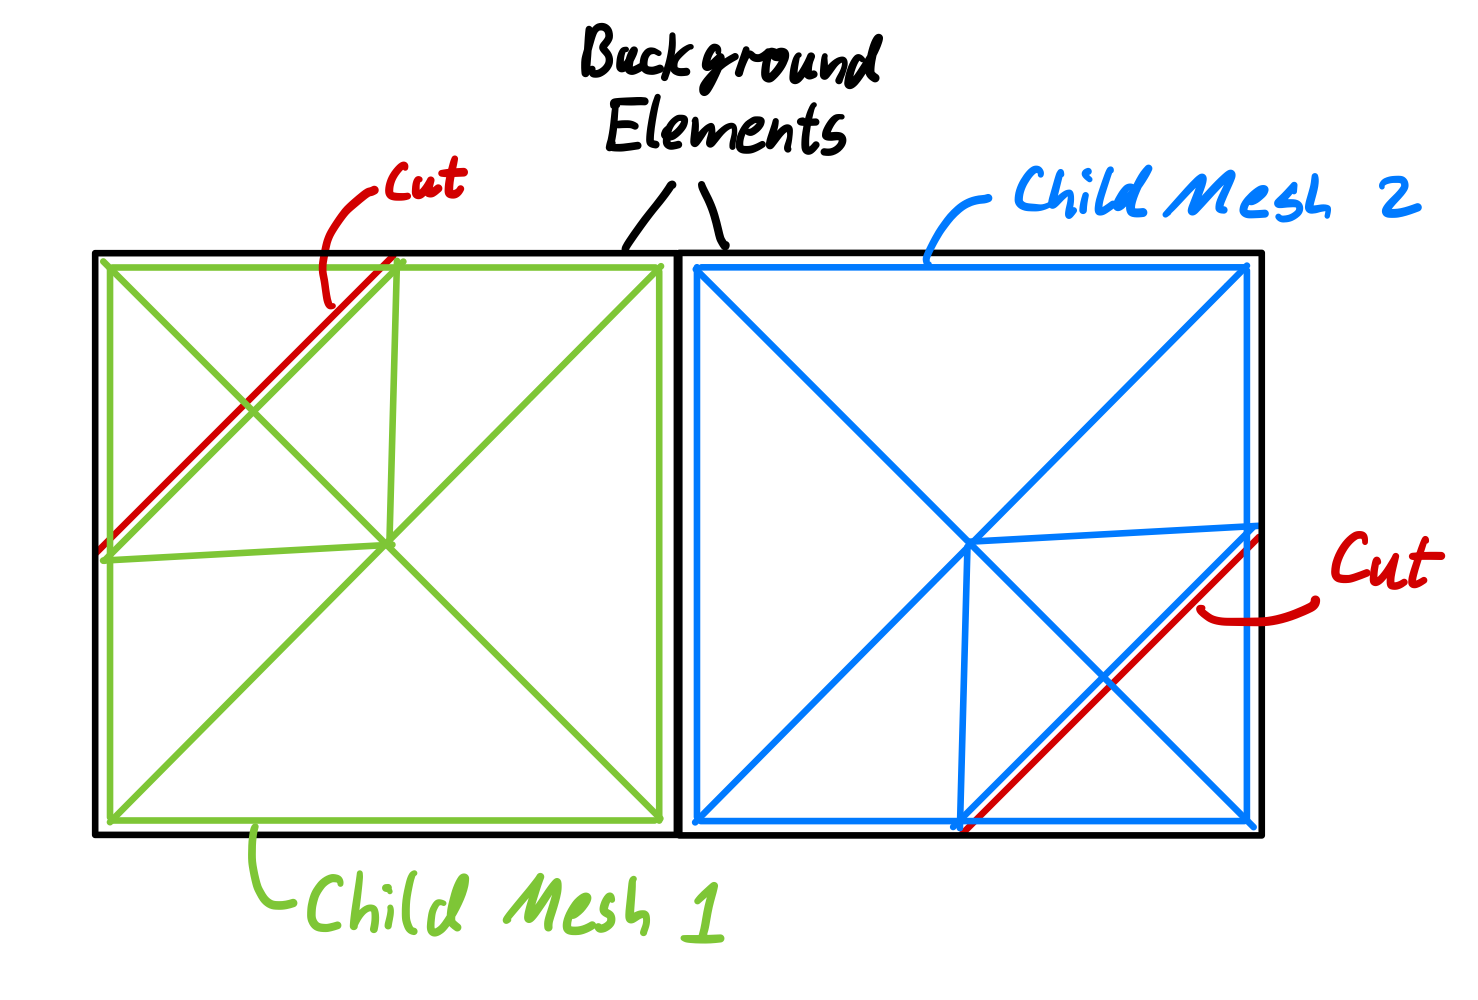 Background
Elements
Cut
Child Mesh 2
Cut
Child Mesh 1